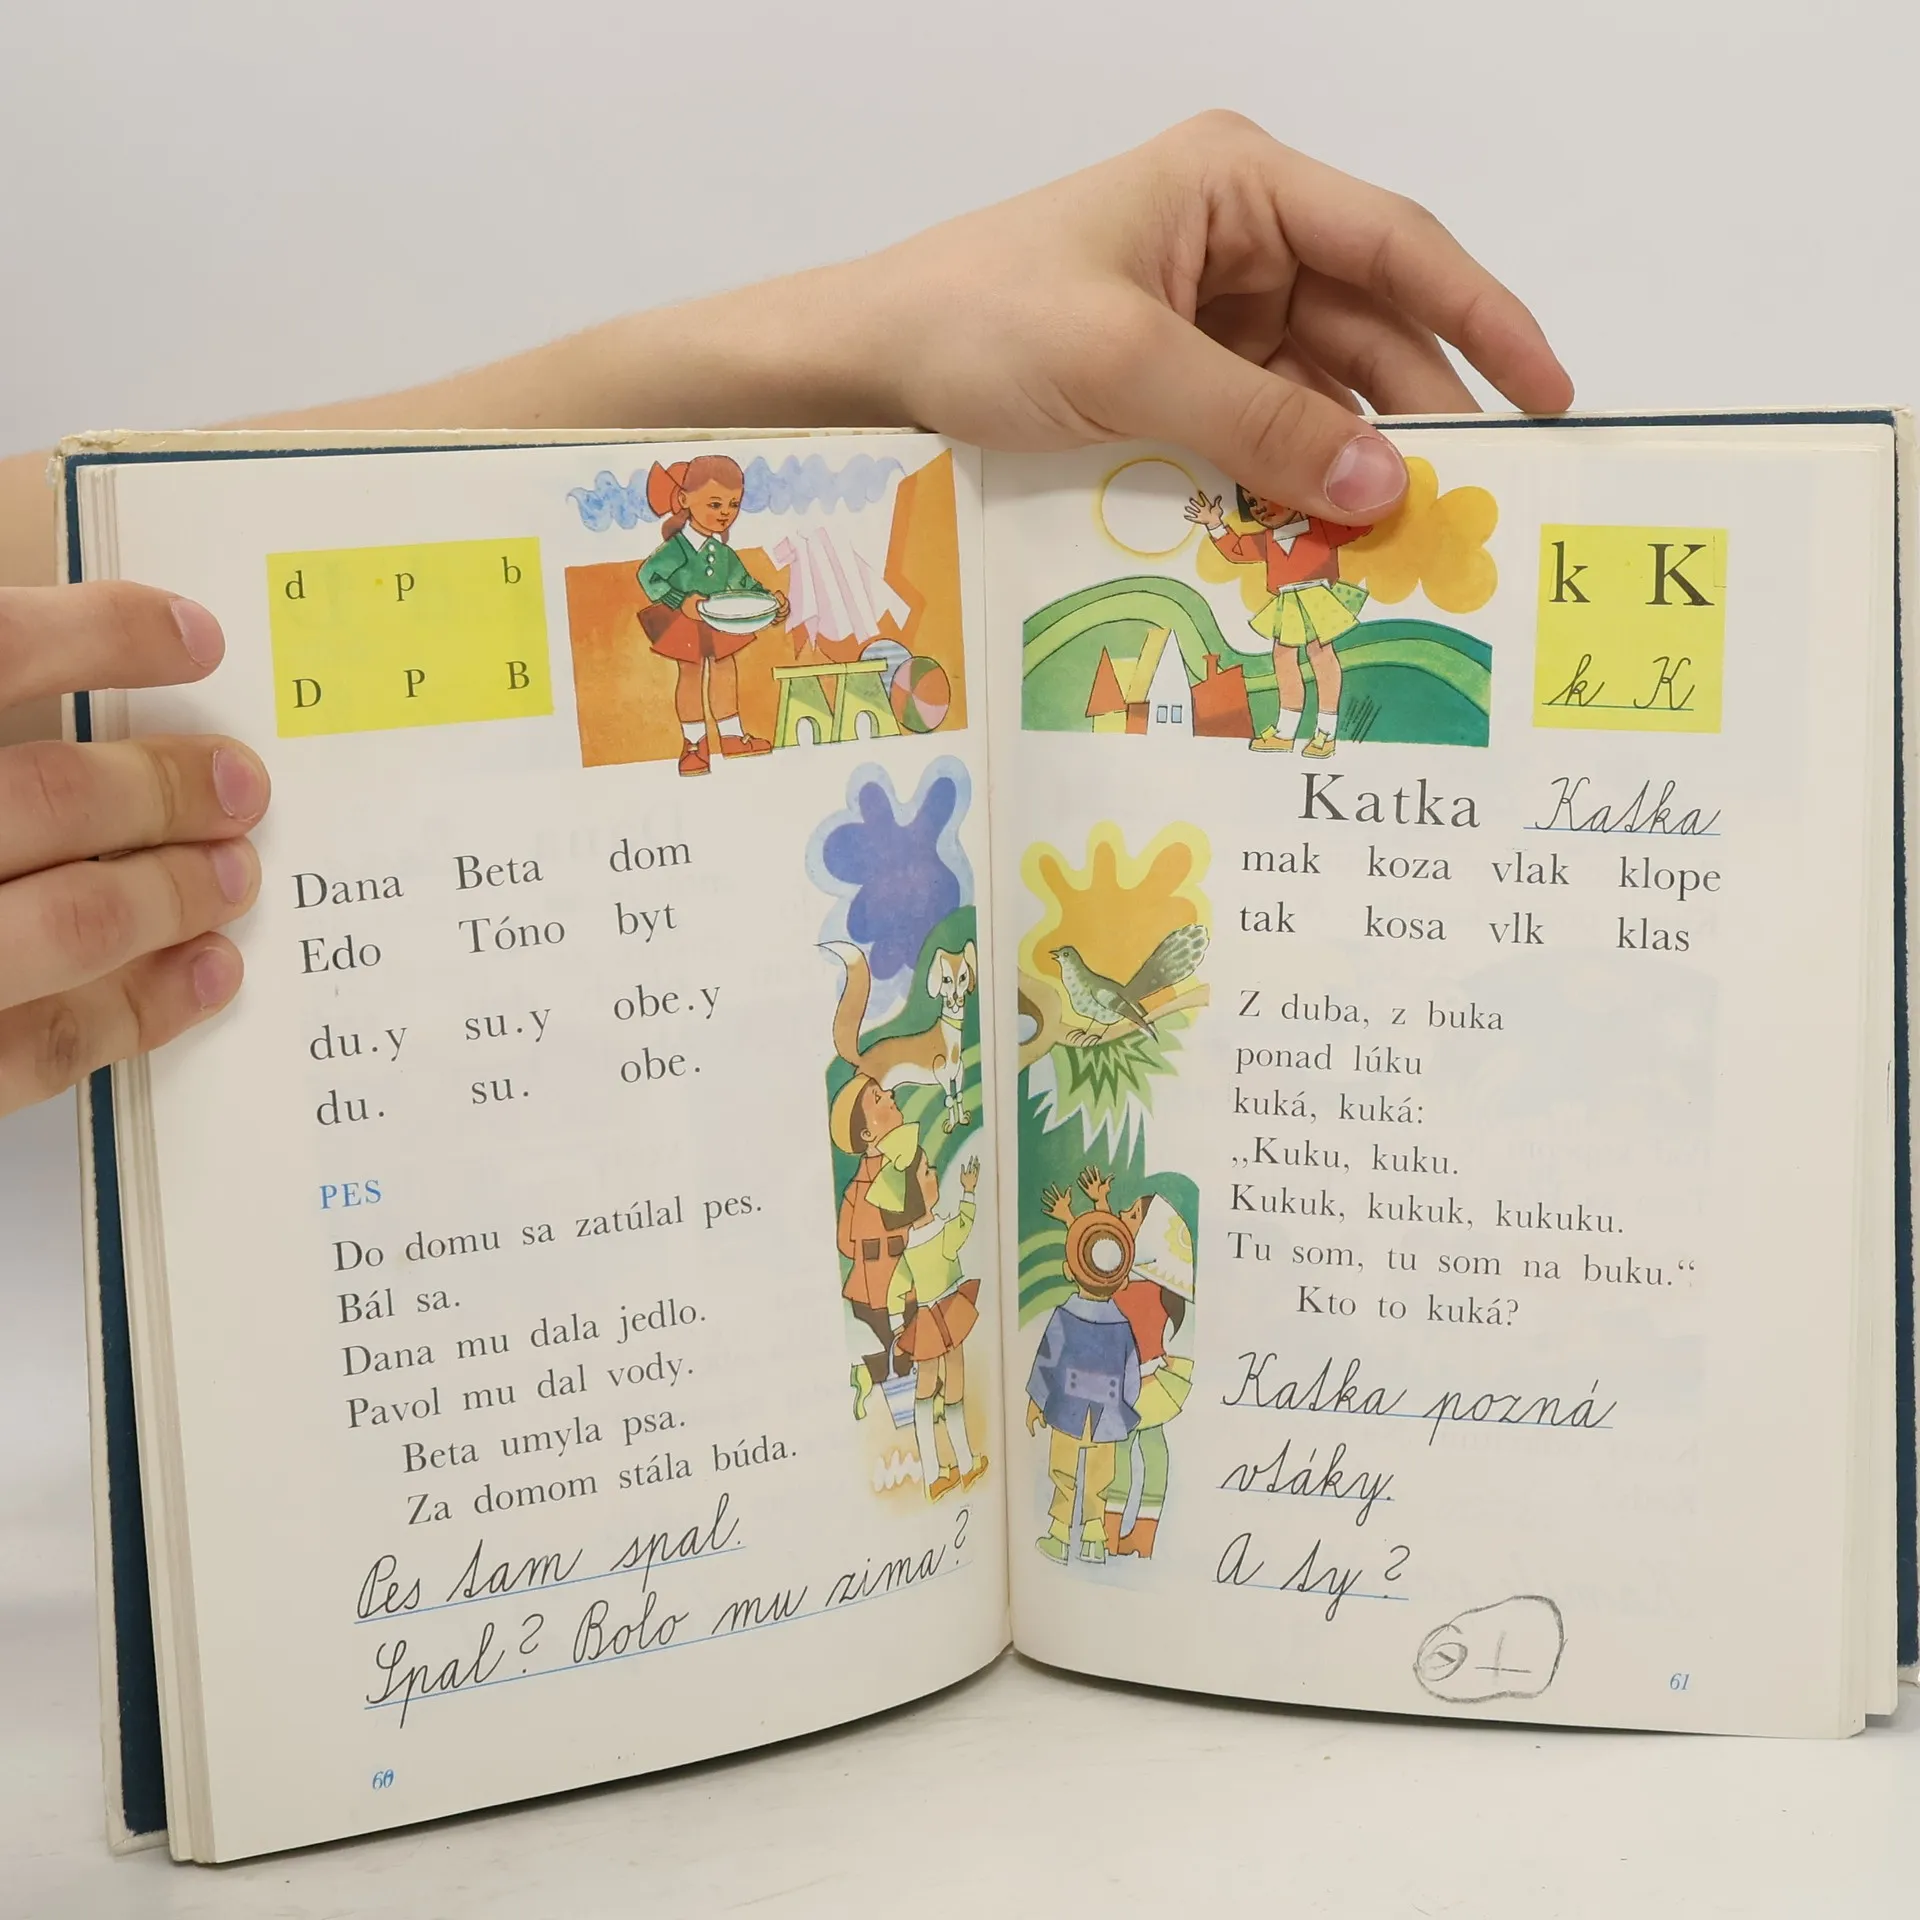 d p b
D P B
Dana Beta dom
Edo Tóno byt
du.y su.y obe.y
du. su. obe.
PES
Do domu sa zatúlal pes.
Bál sa.
Dana mu dala jedlo.
Pavol mu dal vody.
Beta umyla psa.
Za domom stála búda.
Pes tam spal.
Spal? Bolo mu zima?
60
k K
k K
Katka Katka
mak koza vlak klope
tak kosa vlk klas
Z duba, z buka
ponad lúku
kuká, kuká:
„Kuku, kuku.
Kukuk, kukuk, kukuku.
Tu som, tu som na buku.“
Kto to kuká?
Katka pozná
vtáky.
A ty?
61